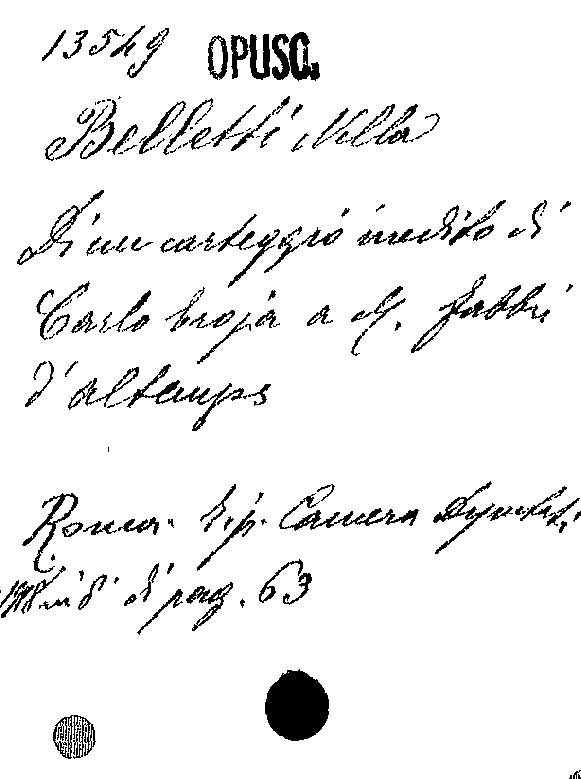 13549 OPUSC.
Belletti Nella
Di un carteggio inedito di
Carlo Troja a M. Fabbri
d'altemps
Roma. Tip. Camera Deputati
in 8° di pag. 63